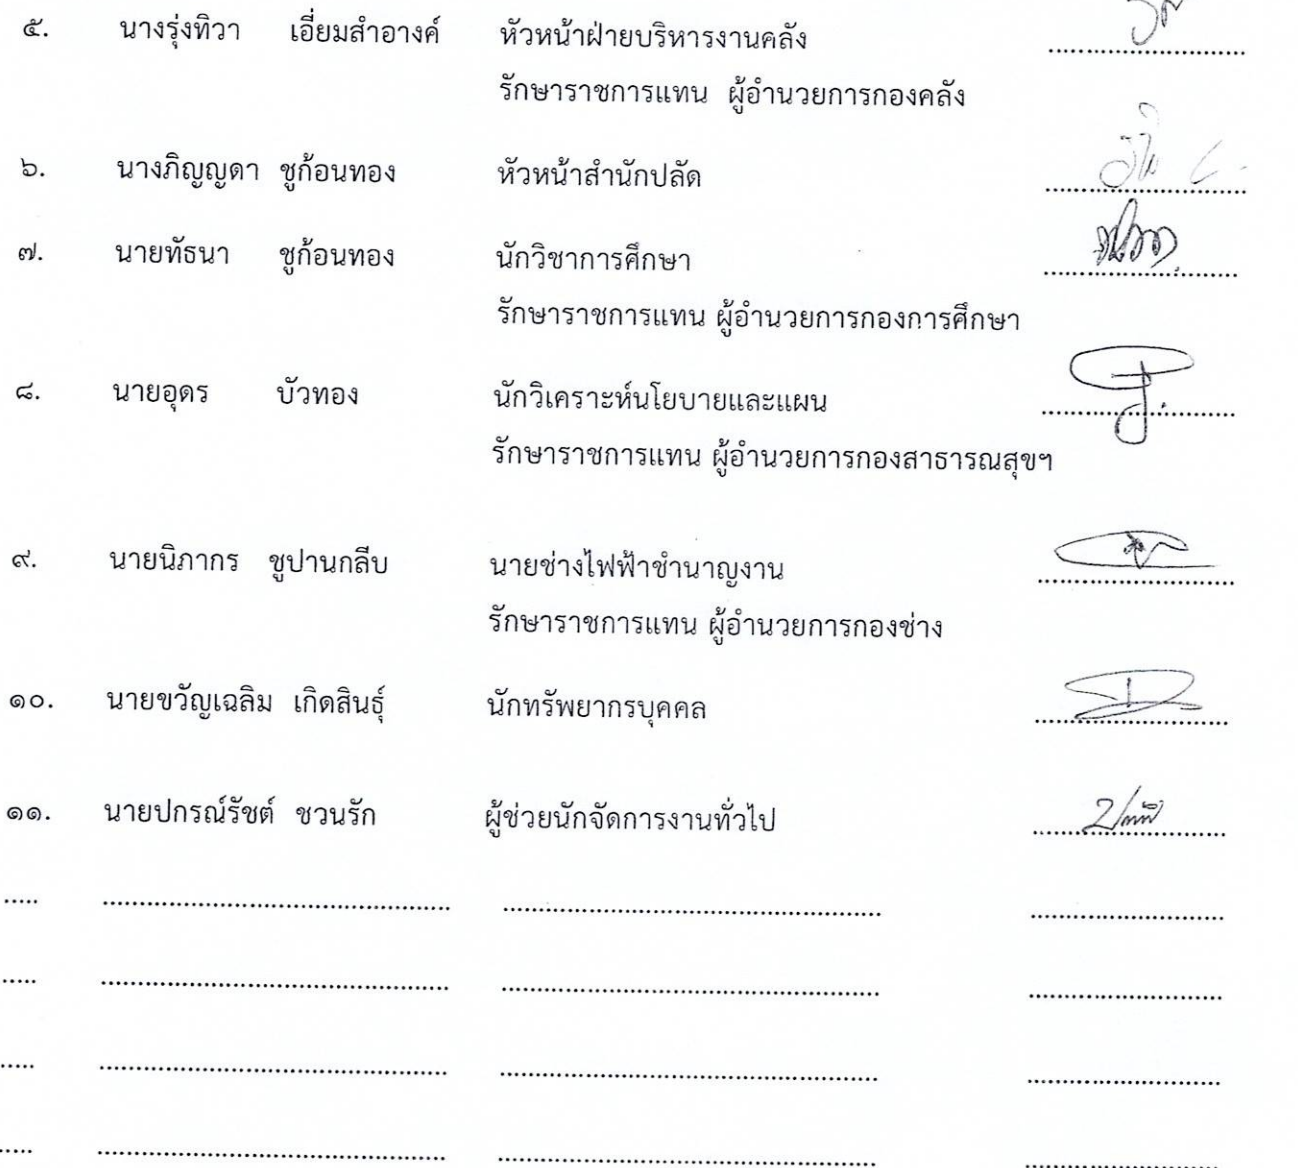 ๕. นางรุ่งทิวา เอี่ยมสำอางค์ หัวหน้าฝ่ายบริหารงานคลัง
รักษาราชการแทน ผู้อำนวยการกองคลัง
๖. นางภิญญดา ชูก้อนทอง หัวหน้าสำนักปลัด
๗. นายทัธนา ชูก้อนทอง นักวิชาการศึกษา
รักษาราชการแทน ผู้อำนวยการกองการศึกษา
๘. นายอุดร บัวทอง นักวิเคราะห์นโยบายและแผน
รักษาราชการแทน ผู้อำนวยการกองสาธารณสุขฯ
๙. นายนิภากร ชูปานกลีบ นายช่างไฟฟ้าชำนาญงาน
รักษาราชการแทน ผู้อำนวยการกองช่าง
๑๐. นายขวัญเฉลิม เกิดสินธุ์ นักทรัพยากรบุคคล
๑๑. นายปกรณ์รัชต์ ชวนรัก ผู้ช่วยนักจัดการงานทั่วไป